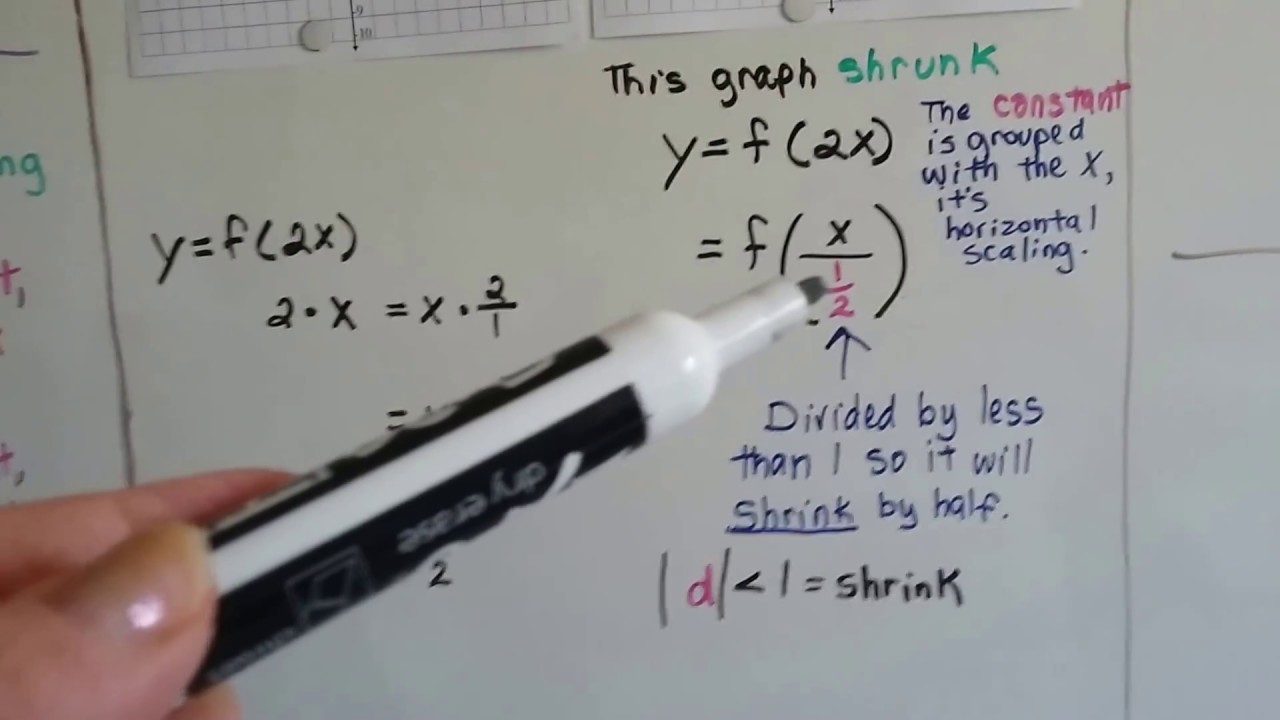 9
10
This graph shrunk
y=f(2x)
The constant
is grouped
with the x,
it's
horizontal
scaling.
= f(x/(1/2))
Divided by less
than 1 so it will
shrink by half.
|d|<1=shrink
ng
t,
t,
y=f(2x)
2·x = x·2/1
=
2
dry erase